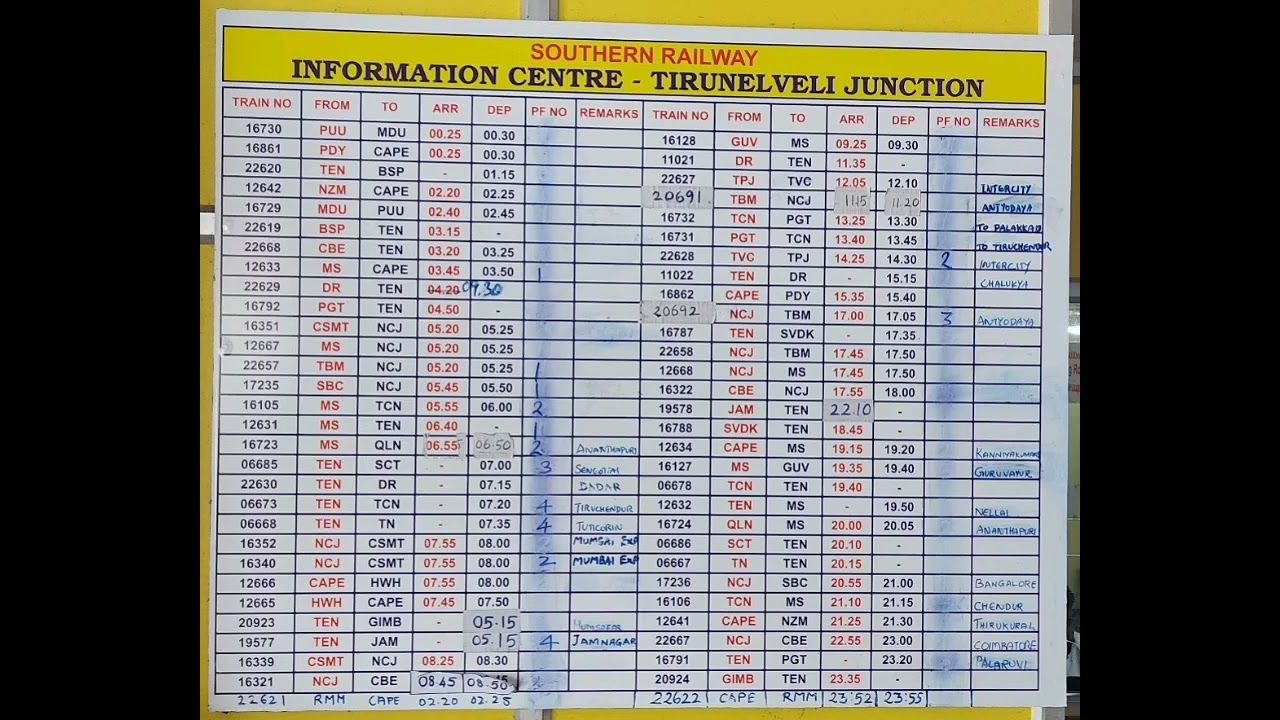 SOUTHERN RAILWAY
INFORMATION CENTRE - TIRUNELVELI JUNCTION
TRAIN NO FROM TO ARR DEP PF NO REMARKS
16730 PUU MDU 00.25 00.30
16861 PDY CAPE 00.25 00.30
22620 TEN BSP - 01.15
12642 NZM CAPE 02.20 02.25
16729 MDU PUU 02.40 02.45
22619 BSP TEN 03.15 -
22668 CBE TEN 03.20 03.25
12633 MS CAPE 03.45 03.50 1
22629 DR TEN 04.20 09.30
16792 PGT TEN 04.50 -
16351 CSMT NCJ 05.20 05.25
12667 MS NCJ 05.20 05.25
22657 TBM NCJ 05.20 05.25 1
17235 SBC NCJ 05.45 05.50 1
16105 MS TCN 05.55 06.00 2
12631 MS TEN 06.40 - 1
16723 MS QLN 06.55 06.50 2 ANANTHAPURI
06685 TEN SCT - 07.00 3
22630 TEN DR - 07.15 DADAR
06673 TEN TCN - 07.20 4 TIRUCHENDUR
06668 TEN TN - 07.35 4 TUTICORIN
16352 NCJ CSMT 07.55 08.00 MUMBAI EXP
16340 NCJ CSMT 07.55 08.00 2 MUMBAI EXP
12666 CAPE HWH 07.55 08.00
12665 HWH CAPE 07.45 07.50
20923 TEN GIMB - 05.15
19577 TEN JAM - 05.15 4 JAMNAGAR
16339 CSMT NCJ 08.25 08.30
16321 NCJ CBE 08.45 08.50
22621 RMM CAPE 02.20 02.25
TRAIN NO FROM TO ARR DEP PF NO REMARKS
16128 GUV MS 09.25 09.30
11021 DR TEN 11.35 -
22627 TPJ TVC 12.05 12.10 INTERCITY
20691 TBM NCJ 11.15 11.20 ANTYODAYA
16732 TCN PGT 13.25 13.30 TO PALAKKAD
16731 PGT TCN 13.40 13.45 TO TIRUCHENDUR
22628 TVC TPJ 14.25 14.30 2 INTERCITY
11022 TEN DR - 15.15 CHALUKYA
16862 CAPE PDY 15.35 15.40
20692 NCJ TBM 17.00 17.05 3 ANTYODAYA
16787 TEN SVDK - 17.35
22658 NCJ TBM 17.45 17.50
12668 NCJ MS 17.45 17.50
16322 CBE NCJ 17.55 18.00
19578 JAM TEN 22.10 -
16788 SVDK TEN 18.45 -
12634 CAPE MS 19.15 19.20 KANNIYAKUMARI
16127 MS GUV 19.35 19.40 GURUVAYUR
06678 TCN TEN 19.40 -
12632 TEN MS - 19.50 NELLAI
16724 QLN MS 20.00 20.05 ANANTHAPURI
06686 SCT TEN 20.10 -
06667 TN TEN 20.15 -
17236 NCJ SBC 20.55 21.00 BANGALORE
16106 TCN MS 21.10 21.15 CHENDUR
12641 CAPE NZM 21.25 21.30 THIRUKURAL
22667 NCJ CBE 22.55 23.00 COIMBATORE
16791 TEN PGT - 23.20 PALARUVI
20924 GIMB TEN 23.35 -
22622 CAPE RMM 23:52 23:55